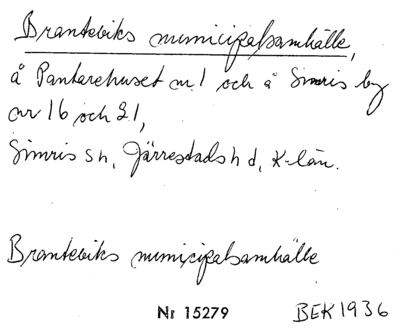 Branteviks municipalsamhälle,
å Pantarehuset nr 1 och å Simris by
nr 16 och 21,
Simris sn, Järrestads hd, K-län.
Branteviks municipalsamhälle
Nr 15279 BEK 1936